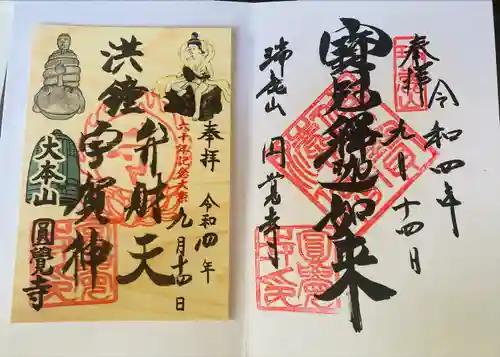 奉拝
令和四年
九月十四日
寶冠釋迦如来
瑞鹿山
円覚寺
奉拝
令和四年
九月十四日
六十年記念大祭
洪鐘
弁財天
宇賀神
大本山
圓覺寺